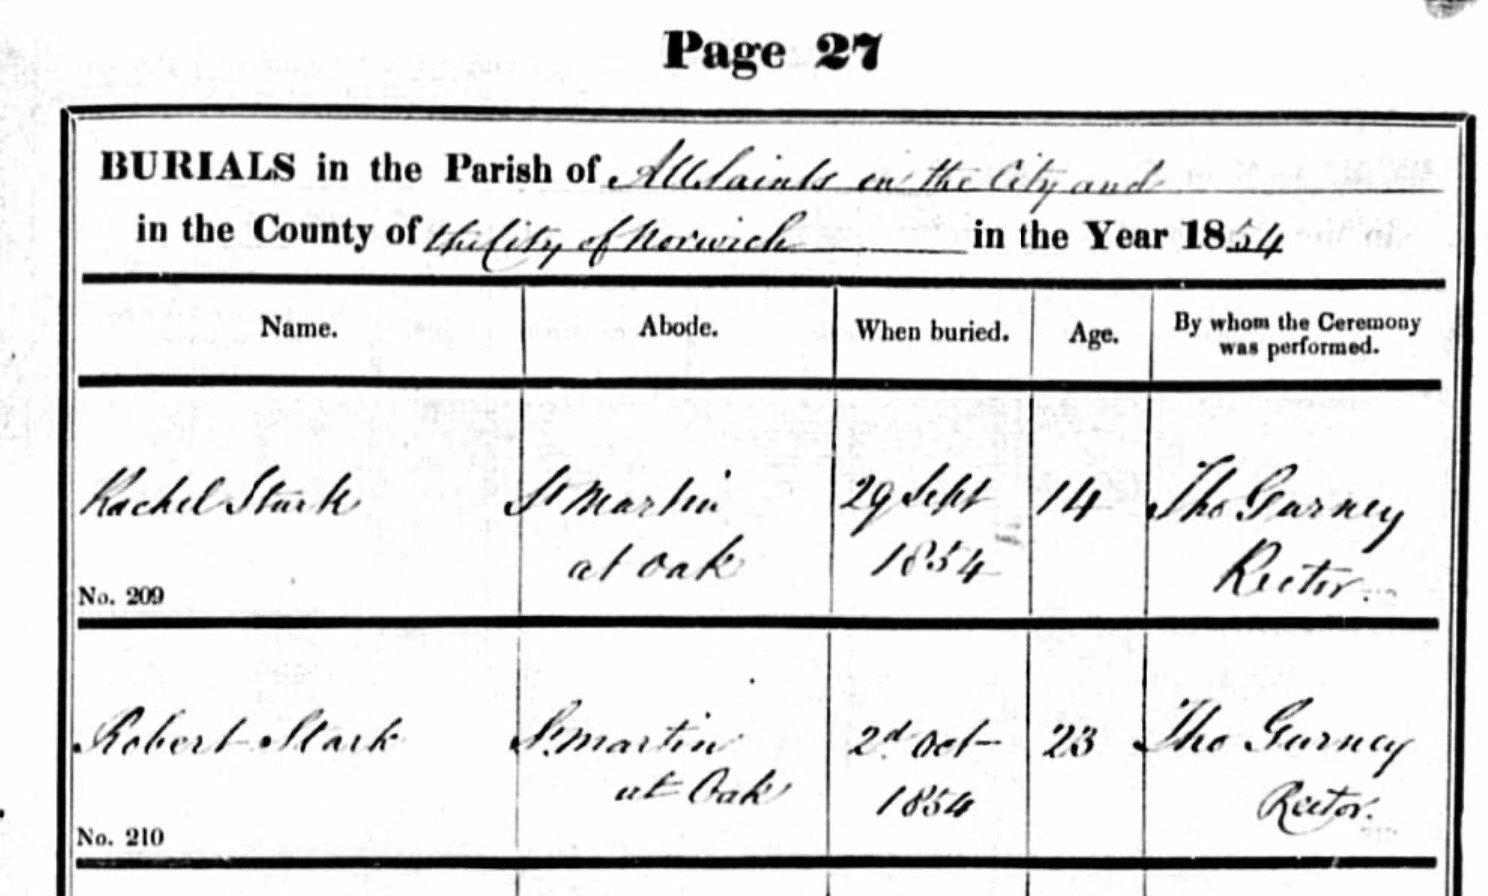 Page 27
BURIALS in the Parish of All Saints in the City and
in the County of the City of Norwich in the Year 1854
Name. Abode. When buried. Age. By whom the Ceremony was performed.
Rachel Stark St Martin 29 Sept 14 Tho Gurney
at Oak 1854 Rector.
No. 209
Robert Stark St Martin 2d Oct 23 Tho Gurney
at Oak 1854 Rector.
No. 210